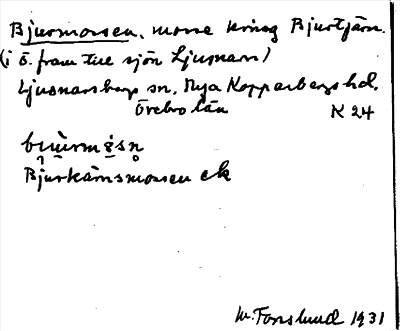 Bjurmossen, mosse kring Bjurtjärn.
(i ö. fram till sjön Ljusnaren)
Ljusnarsbergs sn, Nya Kopparbergs hd,
Örebro län K 24
Bjurkärnsmossen ek
M. Forslund 1931